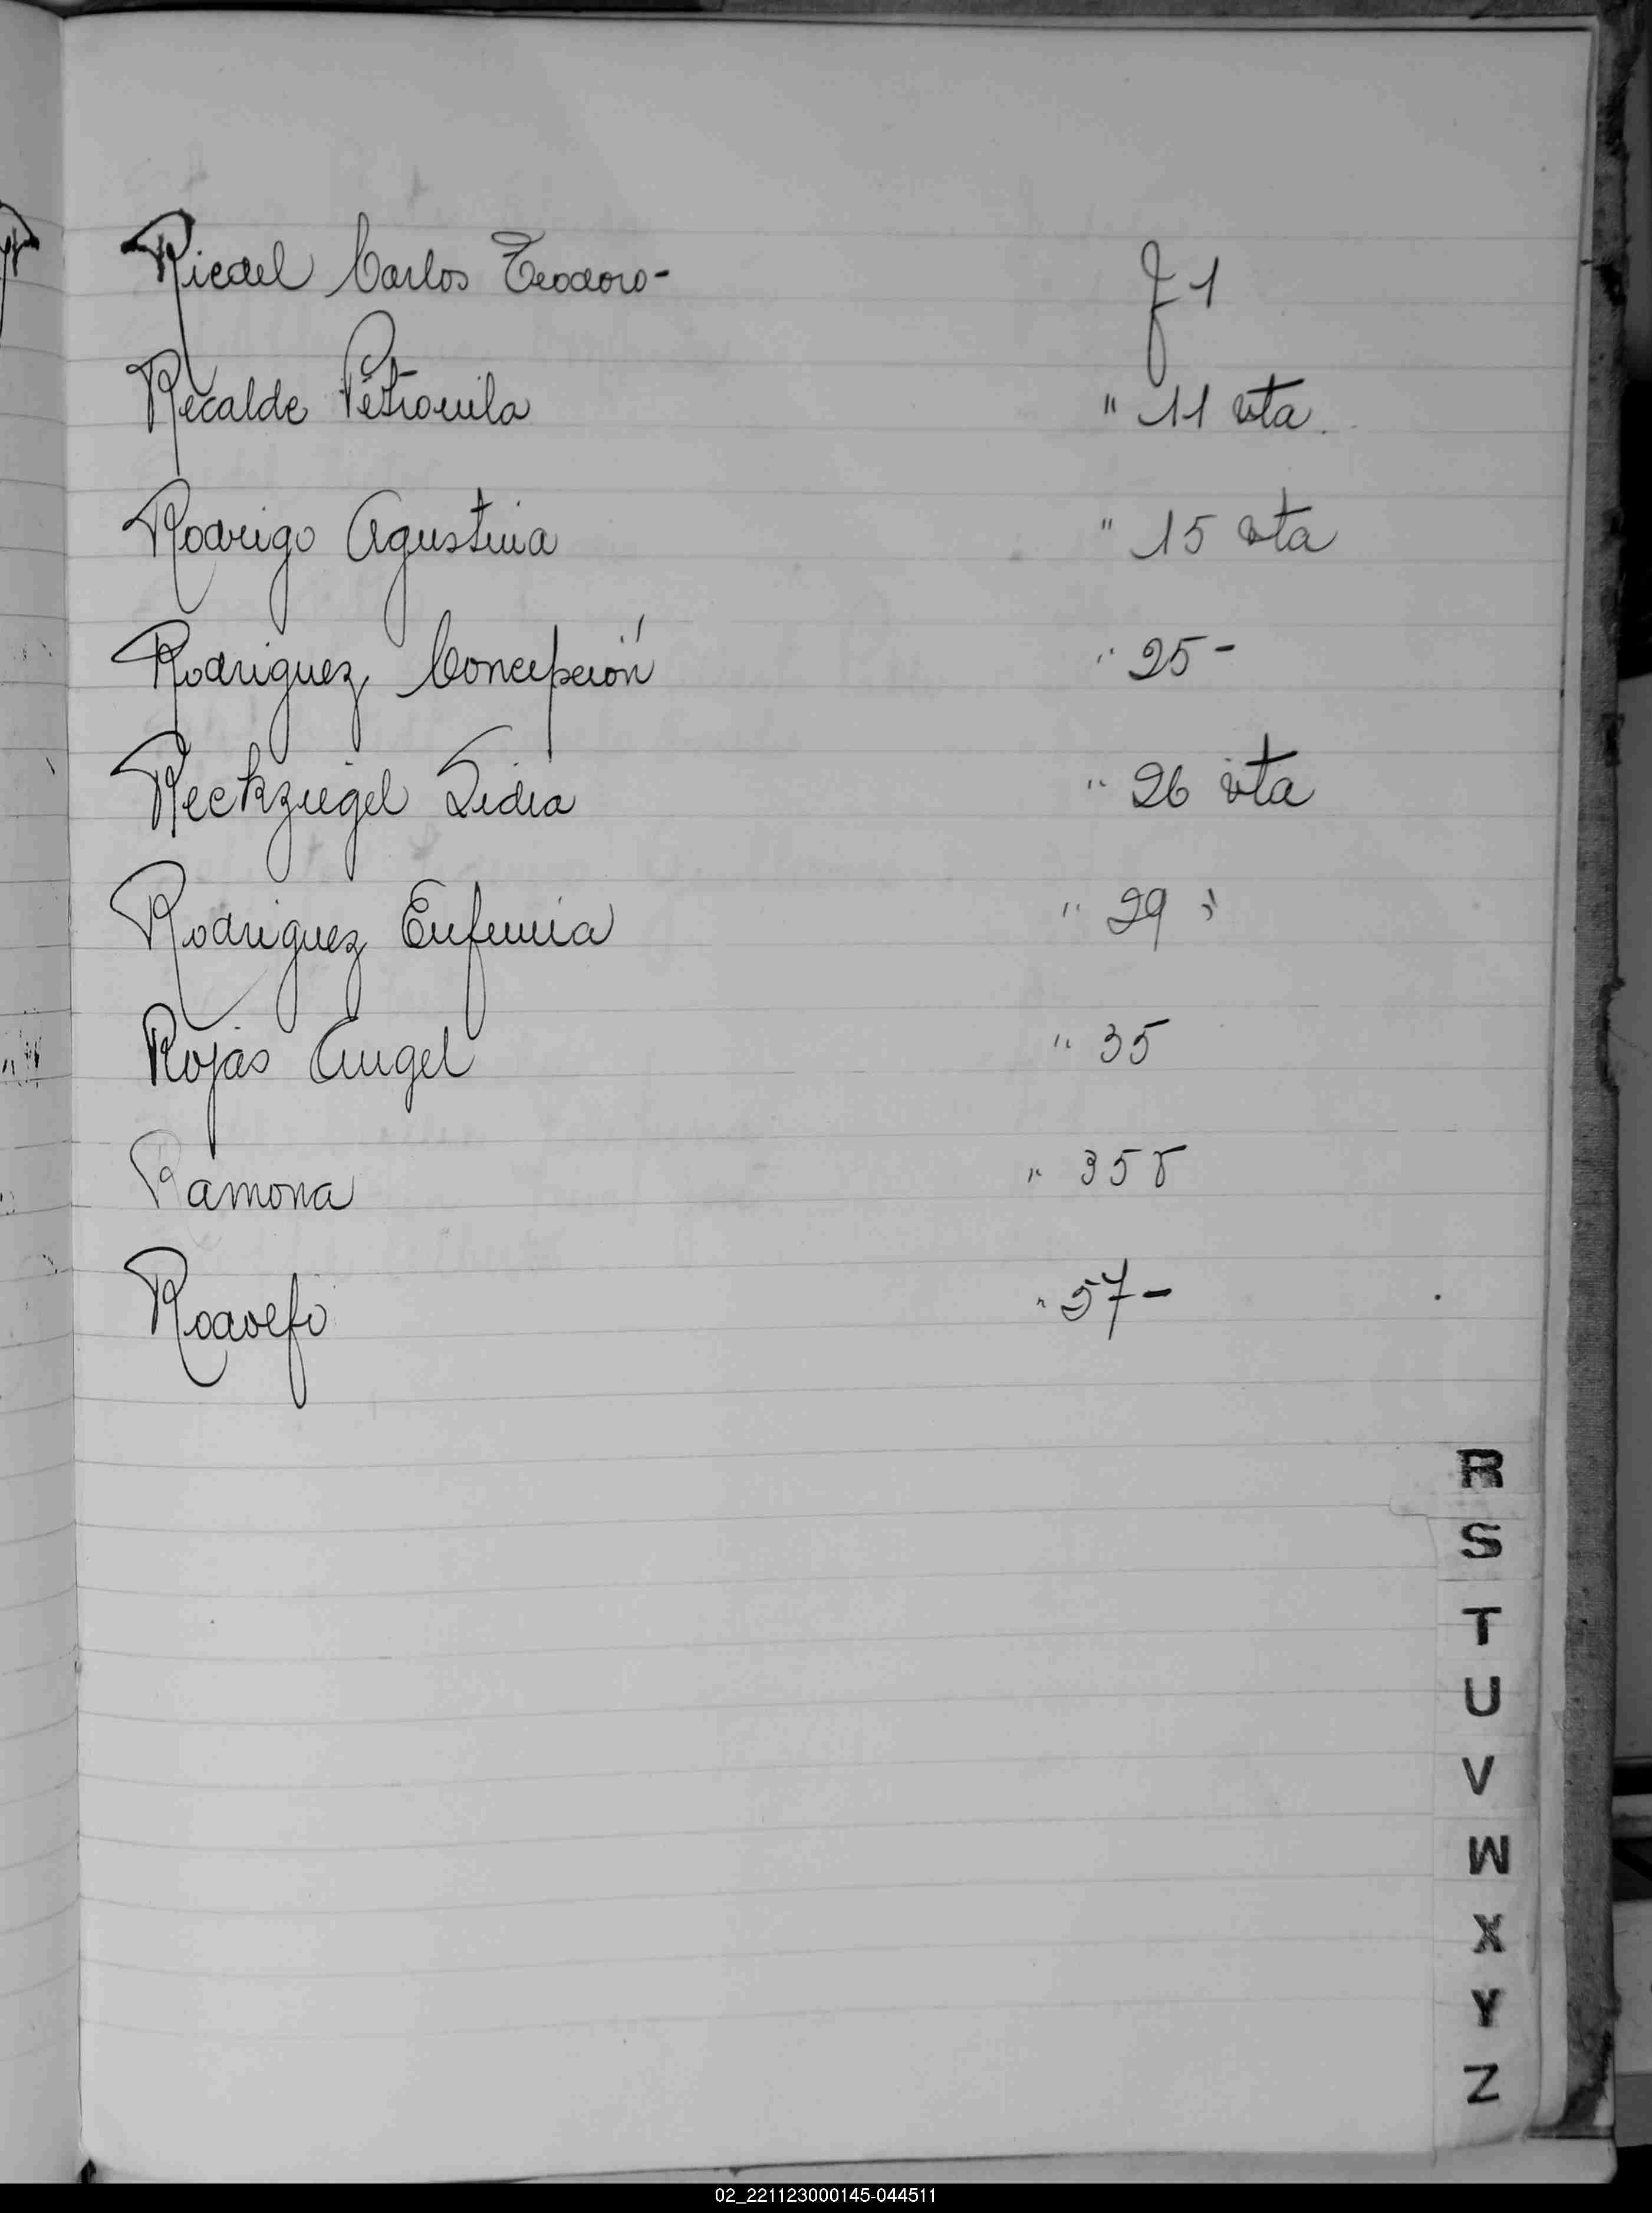 Riedel Carlos Teodoro- f 1
Recalde Petronila " 11 vta.
Rodrigo Agustina " 15 vta
Rodriguez Concepción " 25-
Reckziegel Lidia " 26 vta
Rodriguez Eufemia " 29
Rojas Angel " 35
Ramona " 35
" 57-
R
S
T
U
V
W
X
Y
Z
02_221123000145-044511